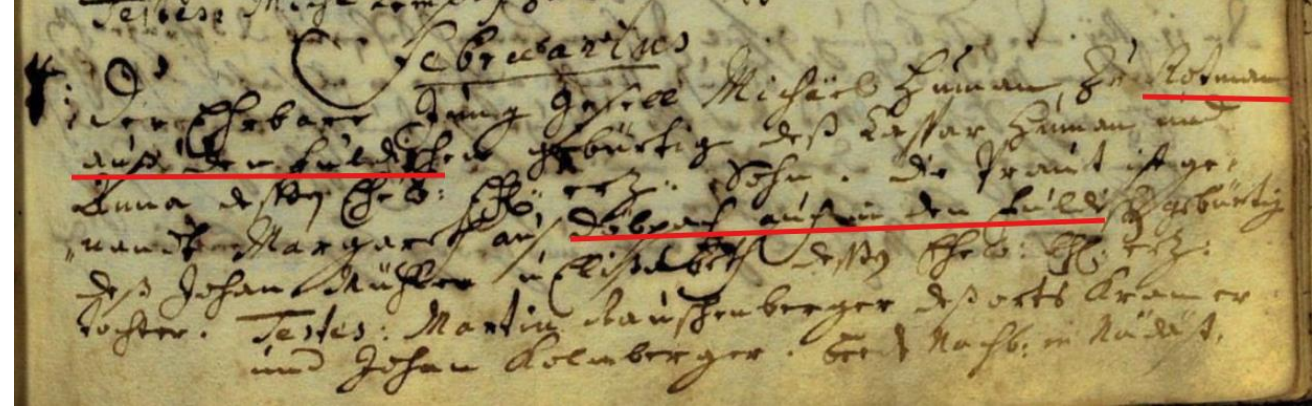 Testes: Mich
Februarius
Der Ehrbare Jung Gesell Michael Human, zu Rotman
auß den Fuldischen gebürtig deß Caspar Human und
Anna dessen Ehew: Ehl: erz: Sohn. die Braut ist ge-
nandt Margareth auß auch in den Fuldi gebürtig
deß Johan Müller u Elisabeth dessen Ehew: Ehl: erz:
tochter. Testes: Martin Rauschenberger deß orts Kramer
und Johan Kolmberger. beede Nachb: in